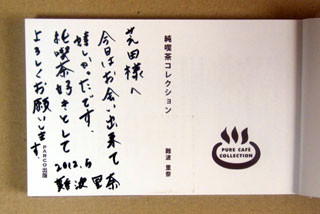 芝田様へ
今日はお会い出来て
嬉しかったです。
純喫茶好きとして
よろしくお願いします。
2012.5
難波里奈
純喫茶コレクション
難波 里奈
PARCO出版
PURE CAFÉ
COLLECTION